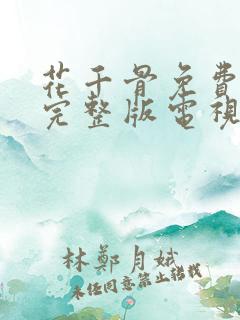 花千骨免費
完整版電視
林鄭月娥
未經同意禁止轉載